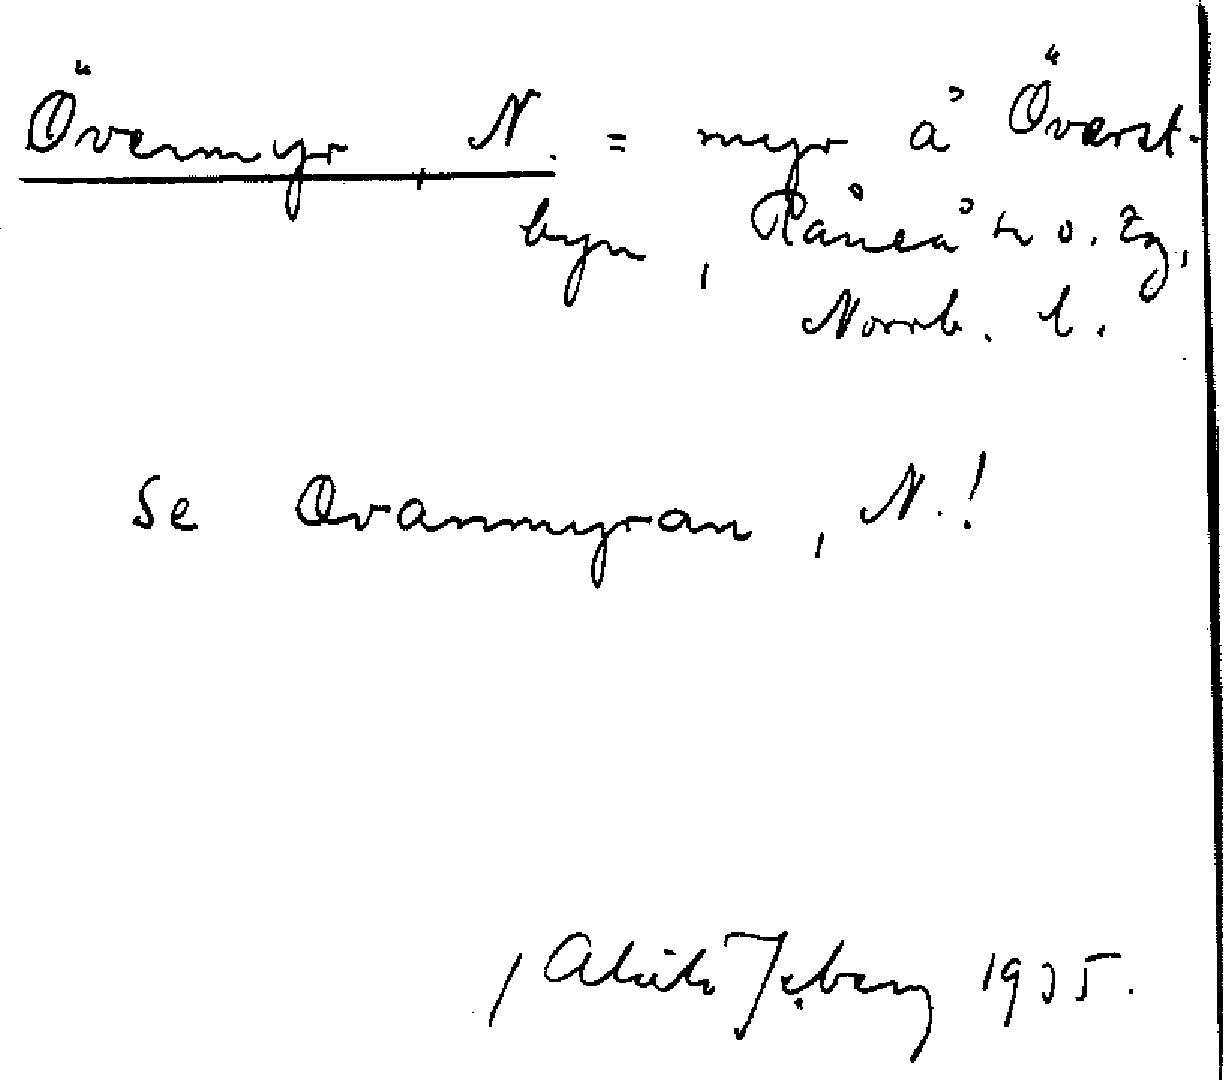 Övermyr, N. = myr å Överst-
byn, Råneå sn o. tg,
Norrb. l.
Se Ovanmyran, N.!
/ 1935.